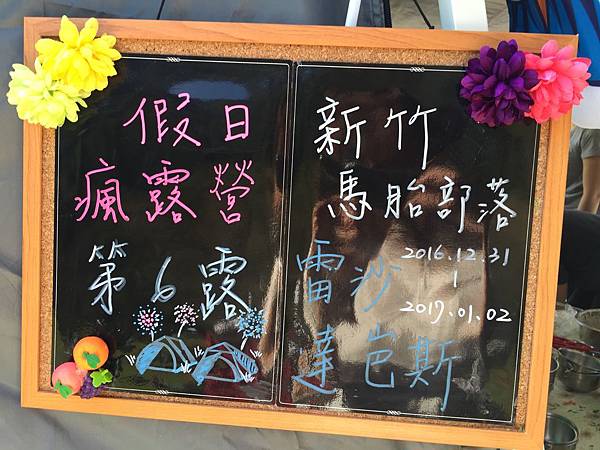 假日
瘋露營
第6露
新竹
馬胎部落
雷沙
2016.12.31
|
2017.01.02
達岜斯